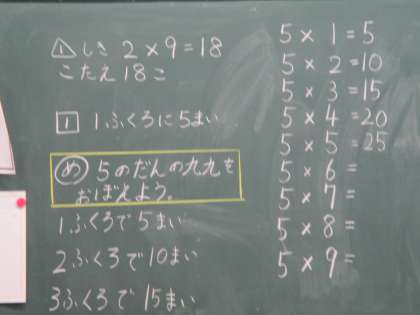 ⚠1 しき 2×9=18
こたえ 18こ
1 1ふくろに5まい
め 5のだんの九九を
おぼえよう。
1ふくろで 5まい
2ふくろで 10まい
3ふくろで 15まい
5×1=5
5×2=10
5×3=15
5×4=20
5×5=25
5×6=
5×7=
5×8=
5×9=